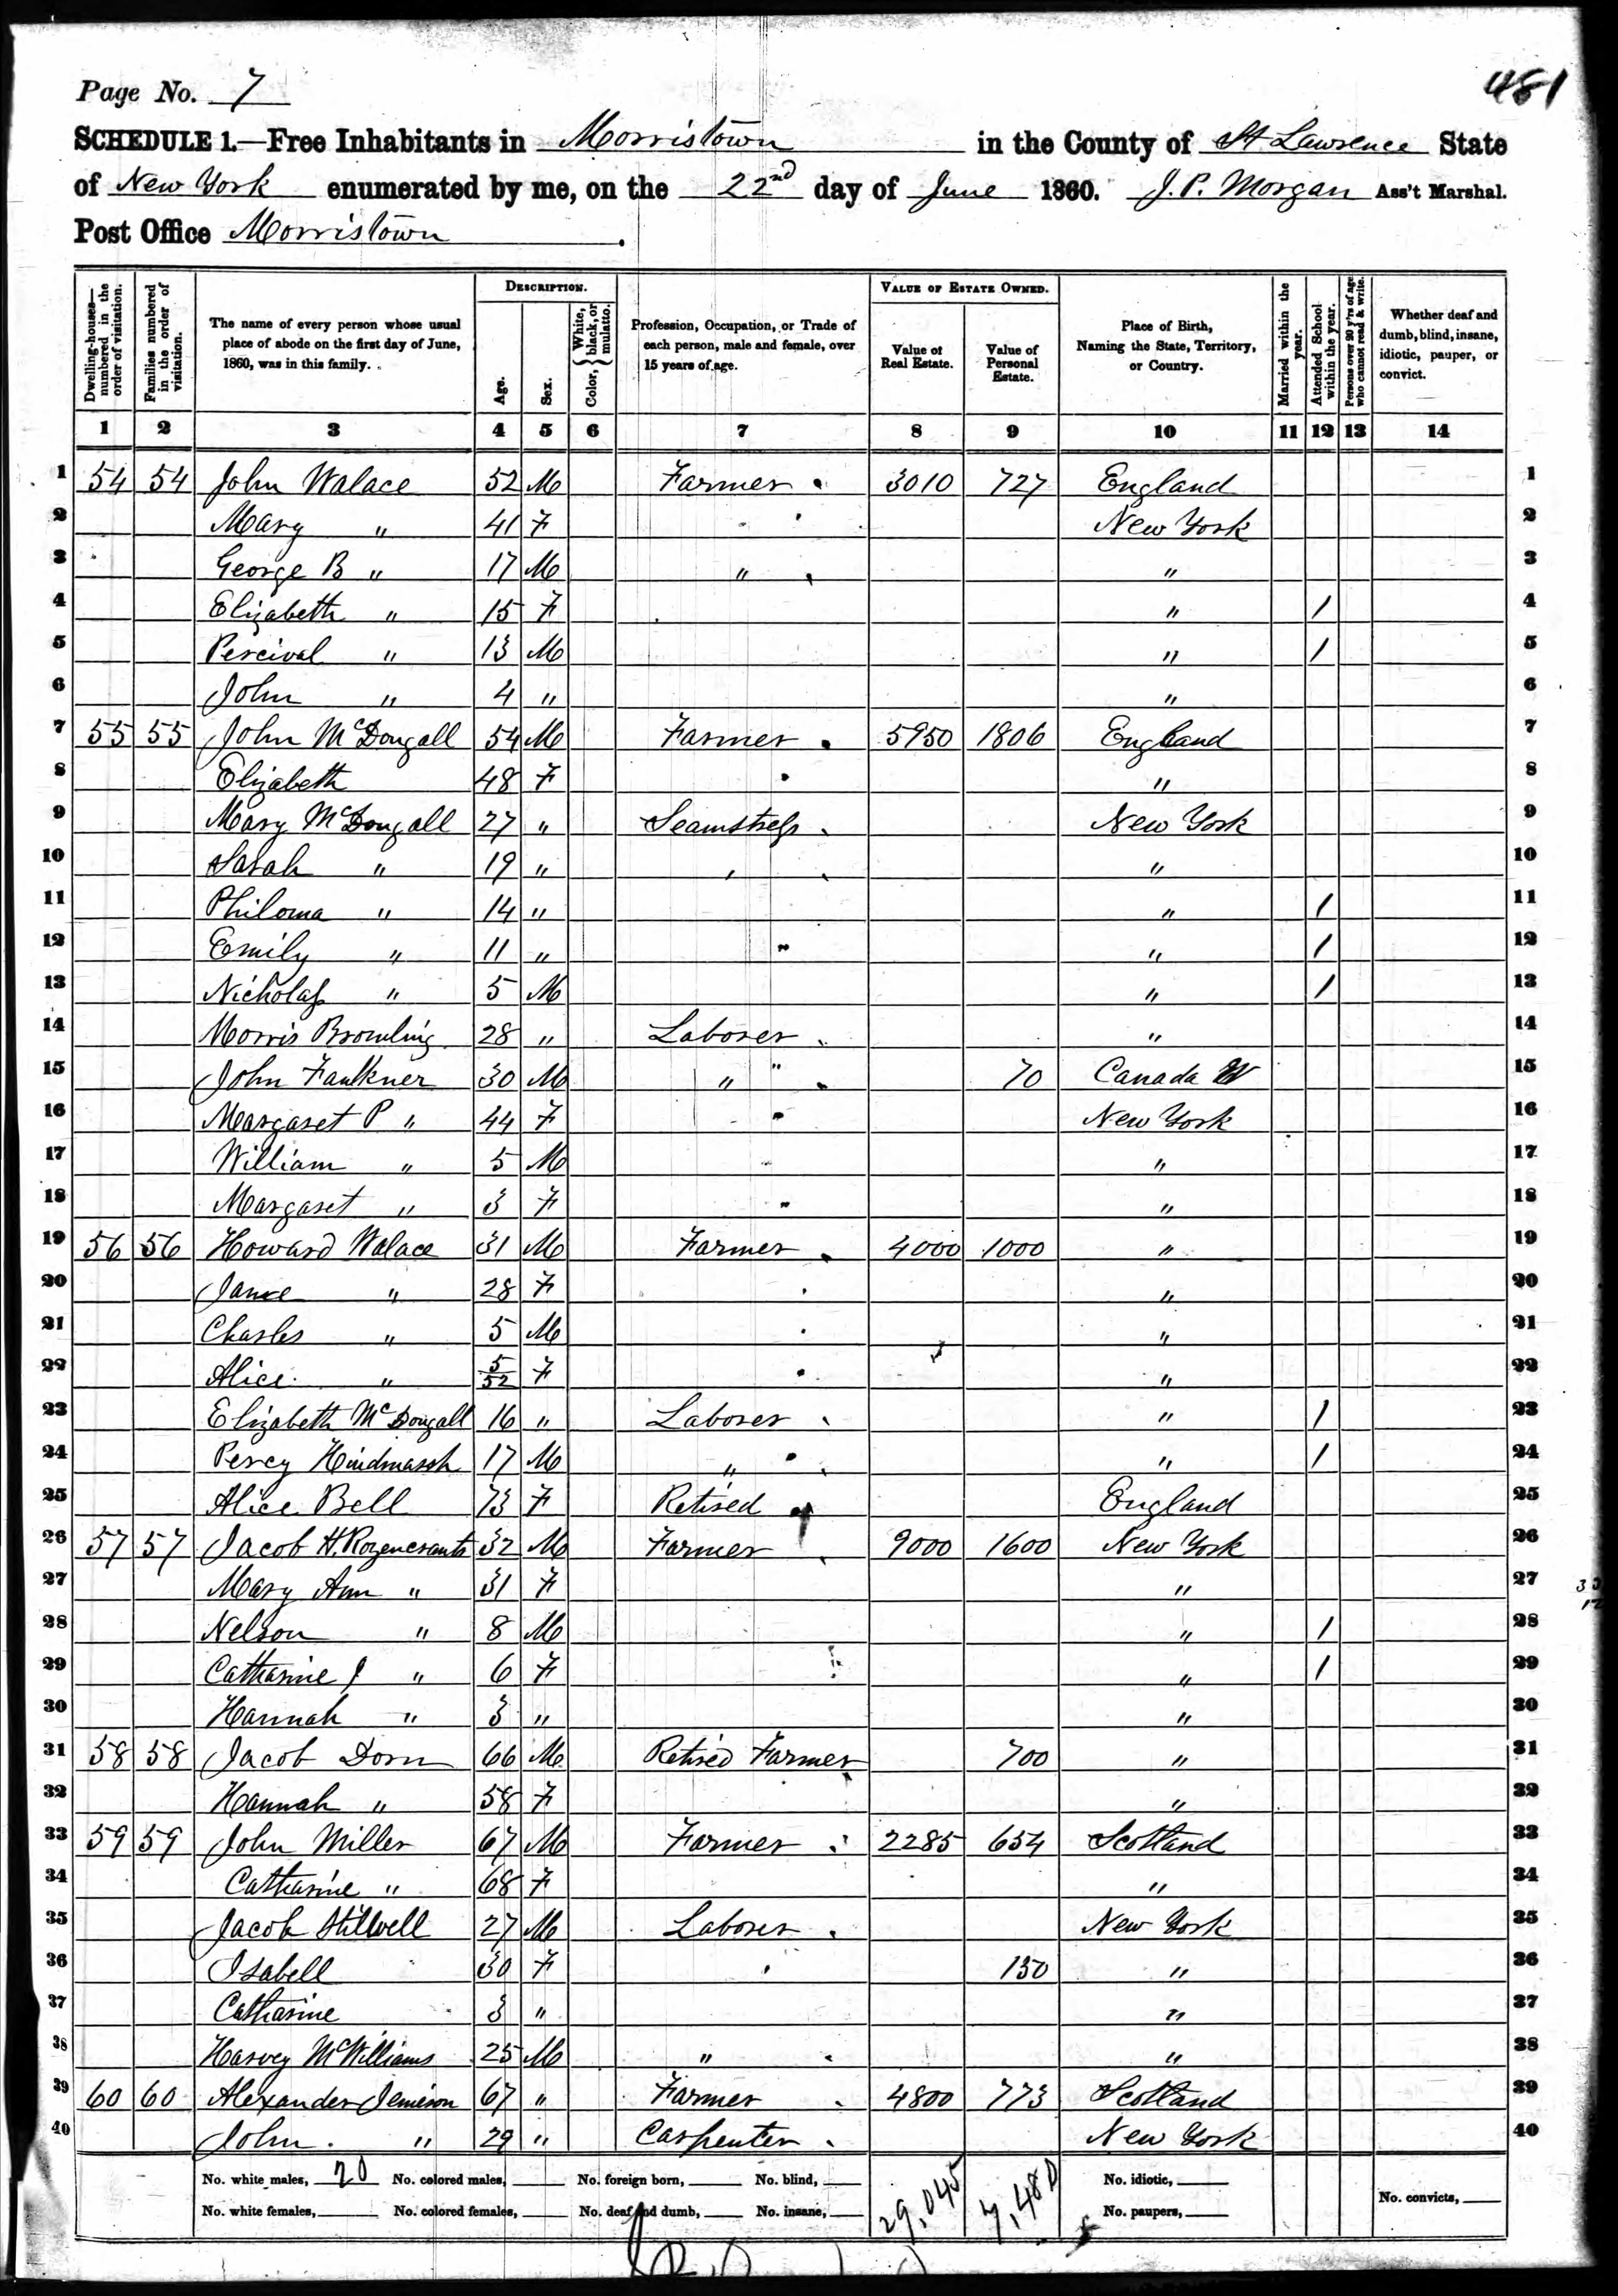 Page No. 7
481
SCHEDULE 1.—Free Inhabitants in Morristown in the County of St Lawrence State
of New York enumerated by me, on the 22nd day of June 1860. J. P. Morgan Ass't Marshal.
Post Office Morristown.
Dwelling-houses—numbered in the order of visitation.
Families numbered in the order of visitation.
The name of every person whose usual place of abode on the first day of June, 1860, was in this family.
DESCRIPTION.
Age.
Sex.
Color, { White, black, or mulatto.
Profession, Occupation, or Trade of each person, male and female, over 15 years of age.
VALUE OF ESTATE OWNED.
Value of Real Estate.
Value of Personal Estate.
Place of Birth, Naming the State, Territory, or Country.
Married within the year.
Attended School within the year.
Persons over 20 y'rs of age who cannot read & write.
Whether deaf and dumb, blind, insane, idiotic, pauper, or convict.
1 2 3 4 5 6 7 8 9 10 11 12 13 14
1 54 54 John Walace 52 M Farmer 3010 727 England 1
2 Mary " 41 F New York 2
3 George B " 17 M " " 3
4 Elizabeth " 15 F " / 4
5 Percival " 13 M " / 5
6 John " 4 " " 6
7 55 55 John McDougall 54 M Farmer 5950 1806 England 7
8 Elizabeth 48 F " 8
9 Mary McDougall 27 " Seamstress New York 9
10 Sarah " 19 " " 10
11 Philoma " 14 " " / 11
12 Emily " 11 " " / 12
13 Nicholas " 5 M " / 13
14 Morris Bromling 28 " Laborer " 14
15 John Faulkner 30 M " 70 Canada W 15
16 Margaret P " 44 F New York 16
17 William " 5 M " 17
18 Margaret " 3 F " 18
19 56 56 Howard Walace 31 M Farmer 4000 1000 " 19
20 Jane " 28 F " 20
21 Charles " 5 M " 21
22 Alice " 5/52 F " 22
23 Elizabeth McDougall 16 " Laborer " / 23
24 Percy Hindmarsh 17 M " " / 24
25 Alice Bell 73 F Retired England 25
26 57 57 Jacob H. Rozencrants 32 M Farmer 9000 1600 New York 26
27 Mary Ann " 31 F " 27
28 Nelson " 8 M " / 28
29 Catharine J " 6 F " / 29
30 Hannah " 3 " " 30
31 58 58 Jacob Dorn 66 M Retired Farmer 700 " 31
32 Hannah " 58 F " 32
33 59 59 John Miller 67 M Farmer 2285 654 Scotland 33
34 Catharine " 68 F " 34
35 Jacob Stillwell 27 M Laborer New York 35
36 Isabell 30 F 150 " 36
37 Catharine 3 " " 37
38 Harvey McWilliams 25 M " " 38
39 60 60 Alexander Jemieson 67 " Farmer 4800 773 Scotland 39
40 John " 29 " Carpenter New York 40
No. white males, 20 No. colored males, No. foreign born, No. blind, 29,045 7,480 No. idiotic,
No. white females, No. colored females, No. deaf and dumb, No. insane, No. paupers, No. convicts,